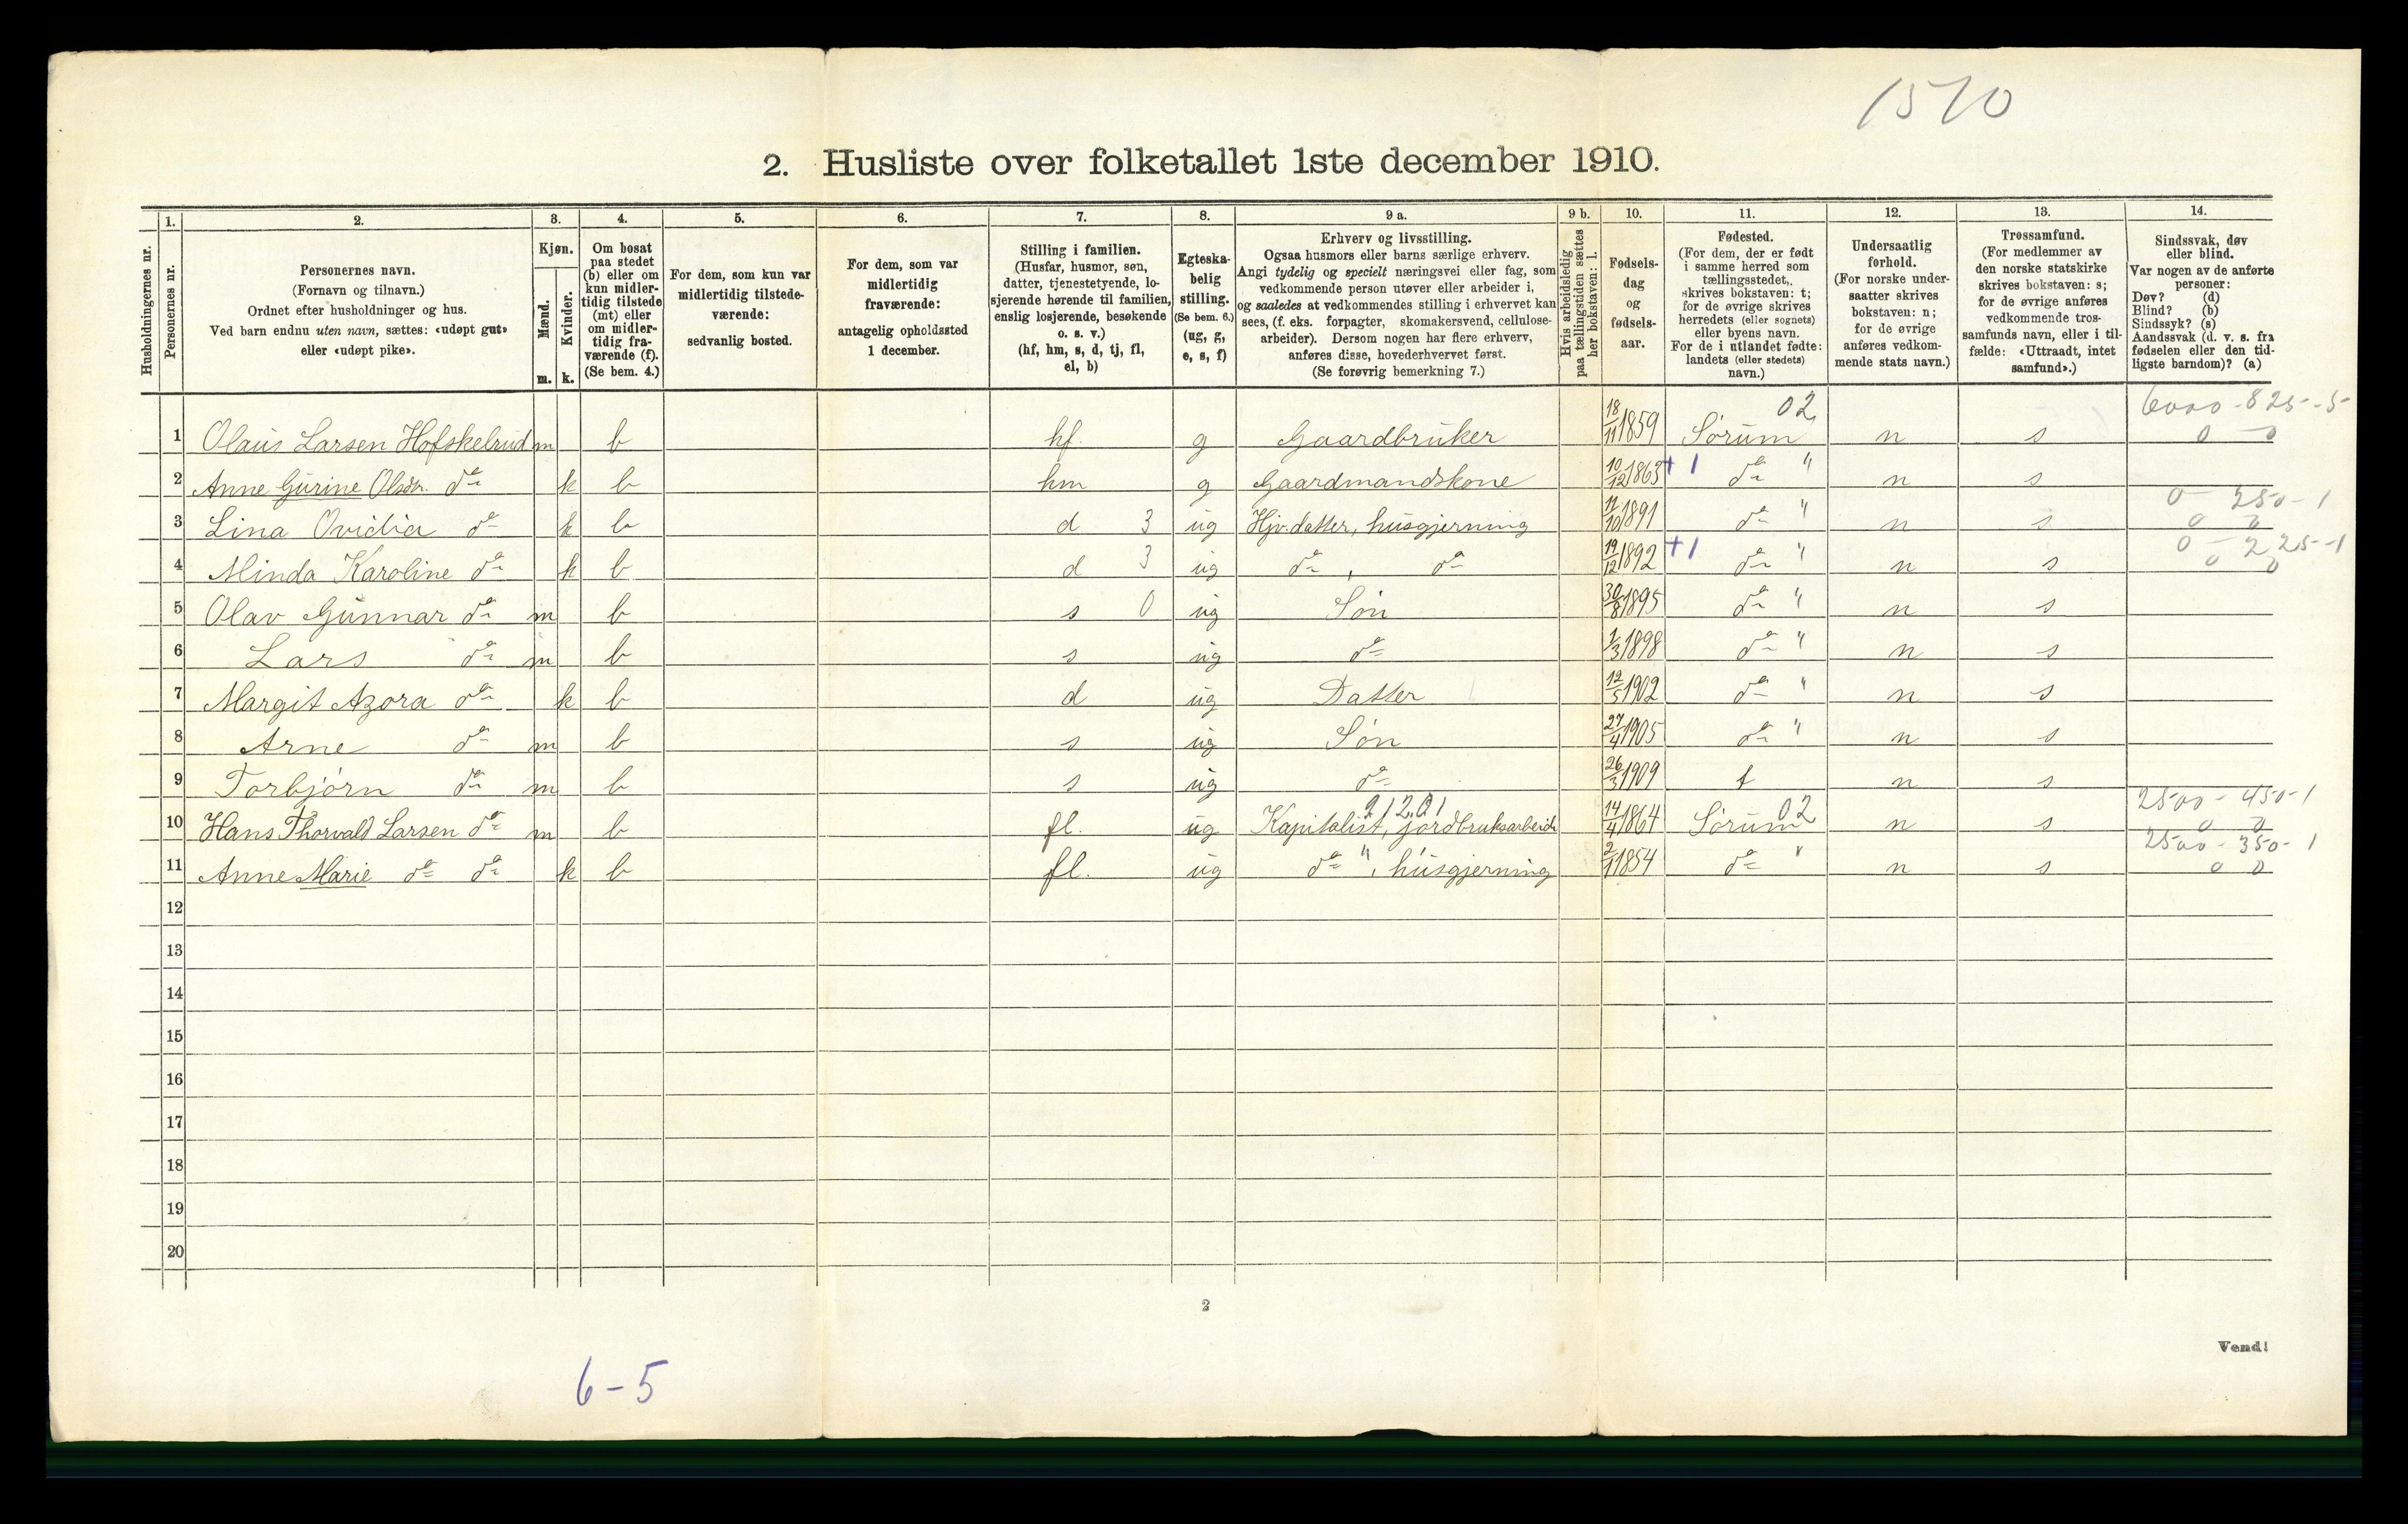 1510
2. Husliste over folketallet 1ste december 1910.
Husholdningernes nr.
1.
Personernes nr.
2.
Personernes navn.
(Fornavn og tilnavn.)
Ordnet efter husholdninger og hus.
Ved barn endnu uten navn, sættes: «udøpt gut»
eller «udøpt pike».
3.
Kjøn.
Mænd.
Kvinder.
m. k.
4.
Om bosat
paa stedet
(b) eller om
kun midler-
tidig tilstede
(mt) eller
om midler-
tidig fra-
værende (f).
(Se bem. 4.)
5.
For dem, som kun var
midlertidig tilstede-
værende:
sedvanlig bosted.
6.
For dem, som var
midlertidig
fraværende:
antagelig opholdssted
1 december.
7.
Stilling i familien.
(Husfar, husmor, søn,
datter, tjenestetyende, lo-
sjerende hørende til familien,
enslig losjerende, besøkende
o. s. v.)
(hf, hm, s, d, tj, fl,
el, b)
8.
Egteska-
belig
stilling.
(Se bem. 6.)
(ug, g,
e, s, f)
9 a.
Erhverv og livsstilling.
Ogsaa husmors eller barns særlige erhverv.
Angi tydelig og specielt næringsvei eller fag, som
vedkommende person utøver eller arbeider i,
og saaledes at vedkommendes stilling i erhvervet kan
sees, (f. eks. forpagter, skomakersvend, cellulose-
arbeider). Dersom nogen har flere erhverv,
anføres disse, hovederhvervet først.
(Se forøvrig bemerkning 7.)
9 b.
Hvis arbeidsledig
paa tællingstiden sættes
her bokstaven: l.
10.
Fødsels-
dag
og
fødsels-
aar.
11.
Fødested.
(For dem, der er født
i samme herred som
tællingsstedet,
skrives bokstaven: t;
for de øvrige skrives
herredets (eller sognets)
eller byens navn.
For de i utlandet fødte:
landets (eller stedets)
navn.)
12.
Undersaatlig
forhold.
(For norske under-
saatter skrives
bokstaven: n;
for de øvrige
anføres vedkom-
mende stats navn.)
13.
Trossamfund.
(For medlemmer av
den norske statskirke
skrives bokstaven: s;
for de øvrige anføres
vedkommende tros-
samfunds navn, eller i til-
fælde: «Uttraadt, intet
samfund».)
14.
Sindssvak, døv
eller blind.
Var nogen av de anførte
personer:
Døv? (d)
Blind? (b)
Sindssyk? (s)
Aandssvak (d. v. s. fra
fødselen eller den tid-
ligste barndom)? (a)
02 6000 - 825 - 5
1 Olaus Larsen Hofskelrud m b hf. g Gaardbruker 18/11 1859 Sørum n s 0 0
2 Anne Gurine Olsdtr. do k b hm g Gaardmandskone 10/12 1863 +1 do " n s
0 - 250 - 1
3 Lina Ovidia do k b d 3 ug Hjv. datter, husgjerning 11/10 1891 do " n s 0 0
0 - 225 - 1
4 Minda Karoline do k b d 3 ug do , do 19/12 1892 +1 do " n s 0 0
5 Olav Gunnar do m b s 0 ug Søn 30/8 1895 do " n s
6 Lars do m b s ug do 1/3 1898 do " n s
7 Margit Azora do k b d ug Datter 12/5 1902 do " n s
8 Arne do m b s ug Søn 27/4 1905 do " n s
9 Torbjørn do m b s ug do 26/3 1909 t n s
02 2500 - 450 - 1
10 Hans Thorvald Larsen do m b fl. ug Kapitalist, jordbruksarbeide 14/4 1864 Sørum n s 0 0
2500 - 350 - 1
11 Anne Marie do do k b fl. ug do ", husgjerning 2/1 1854 do " n s 0 0
12
13
14
15
16
17
18
19
20
2
Vend!
6-5